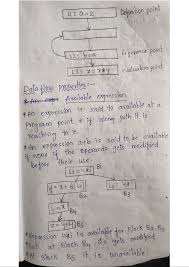 L1: a=2
Definition point
L2: b=a
Reference point
L3: z=x+y
evaluation point
Data flow properties:-
* Available expression
* An expression is said to available at a
Program point x if along path it is
reaching to x.
* An expression a+b is said to be available
if none of the operands gets modified
before their use.
B1
B2
B3
B4
* Expression 4*i is available for block B2, B3
but at Block B4 it's gets modified
at Block B4 it is unavailable